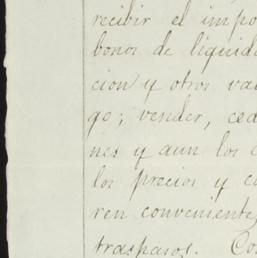 recibir el impo
bonos de liquida
cion y otros va
go; vender, ced
nes y aun los
los precios y co
ren conveniente
traspasos. Co